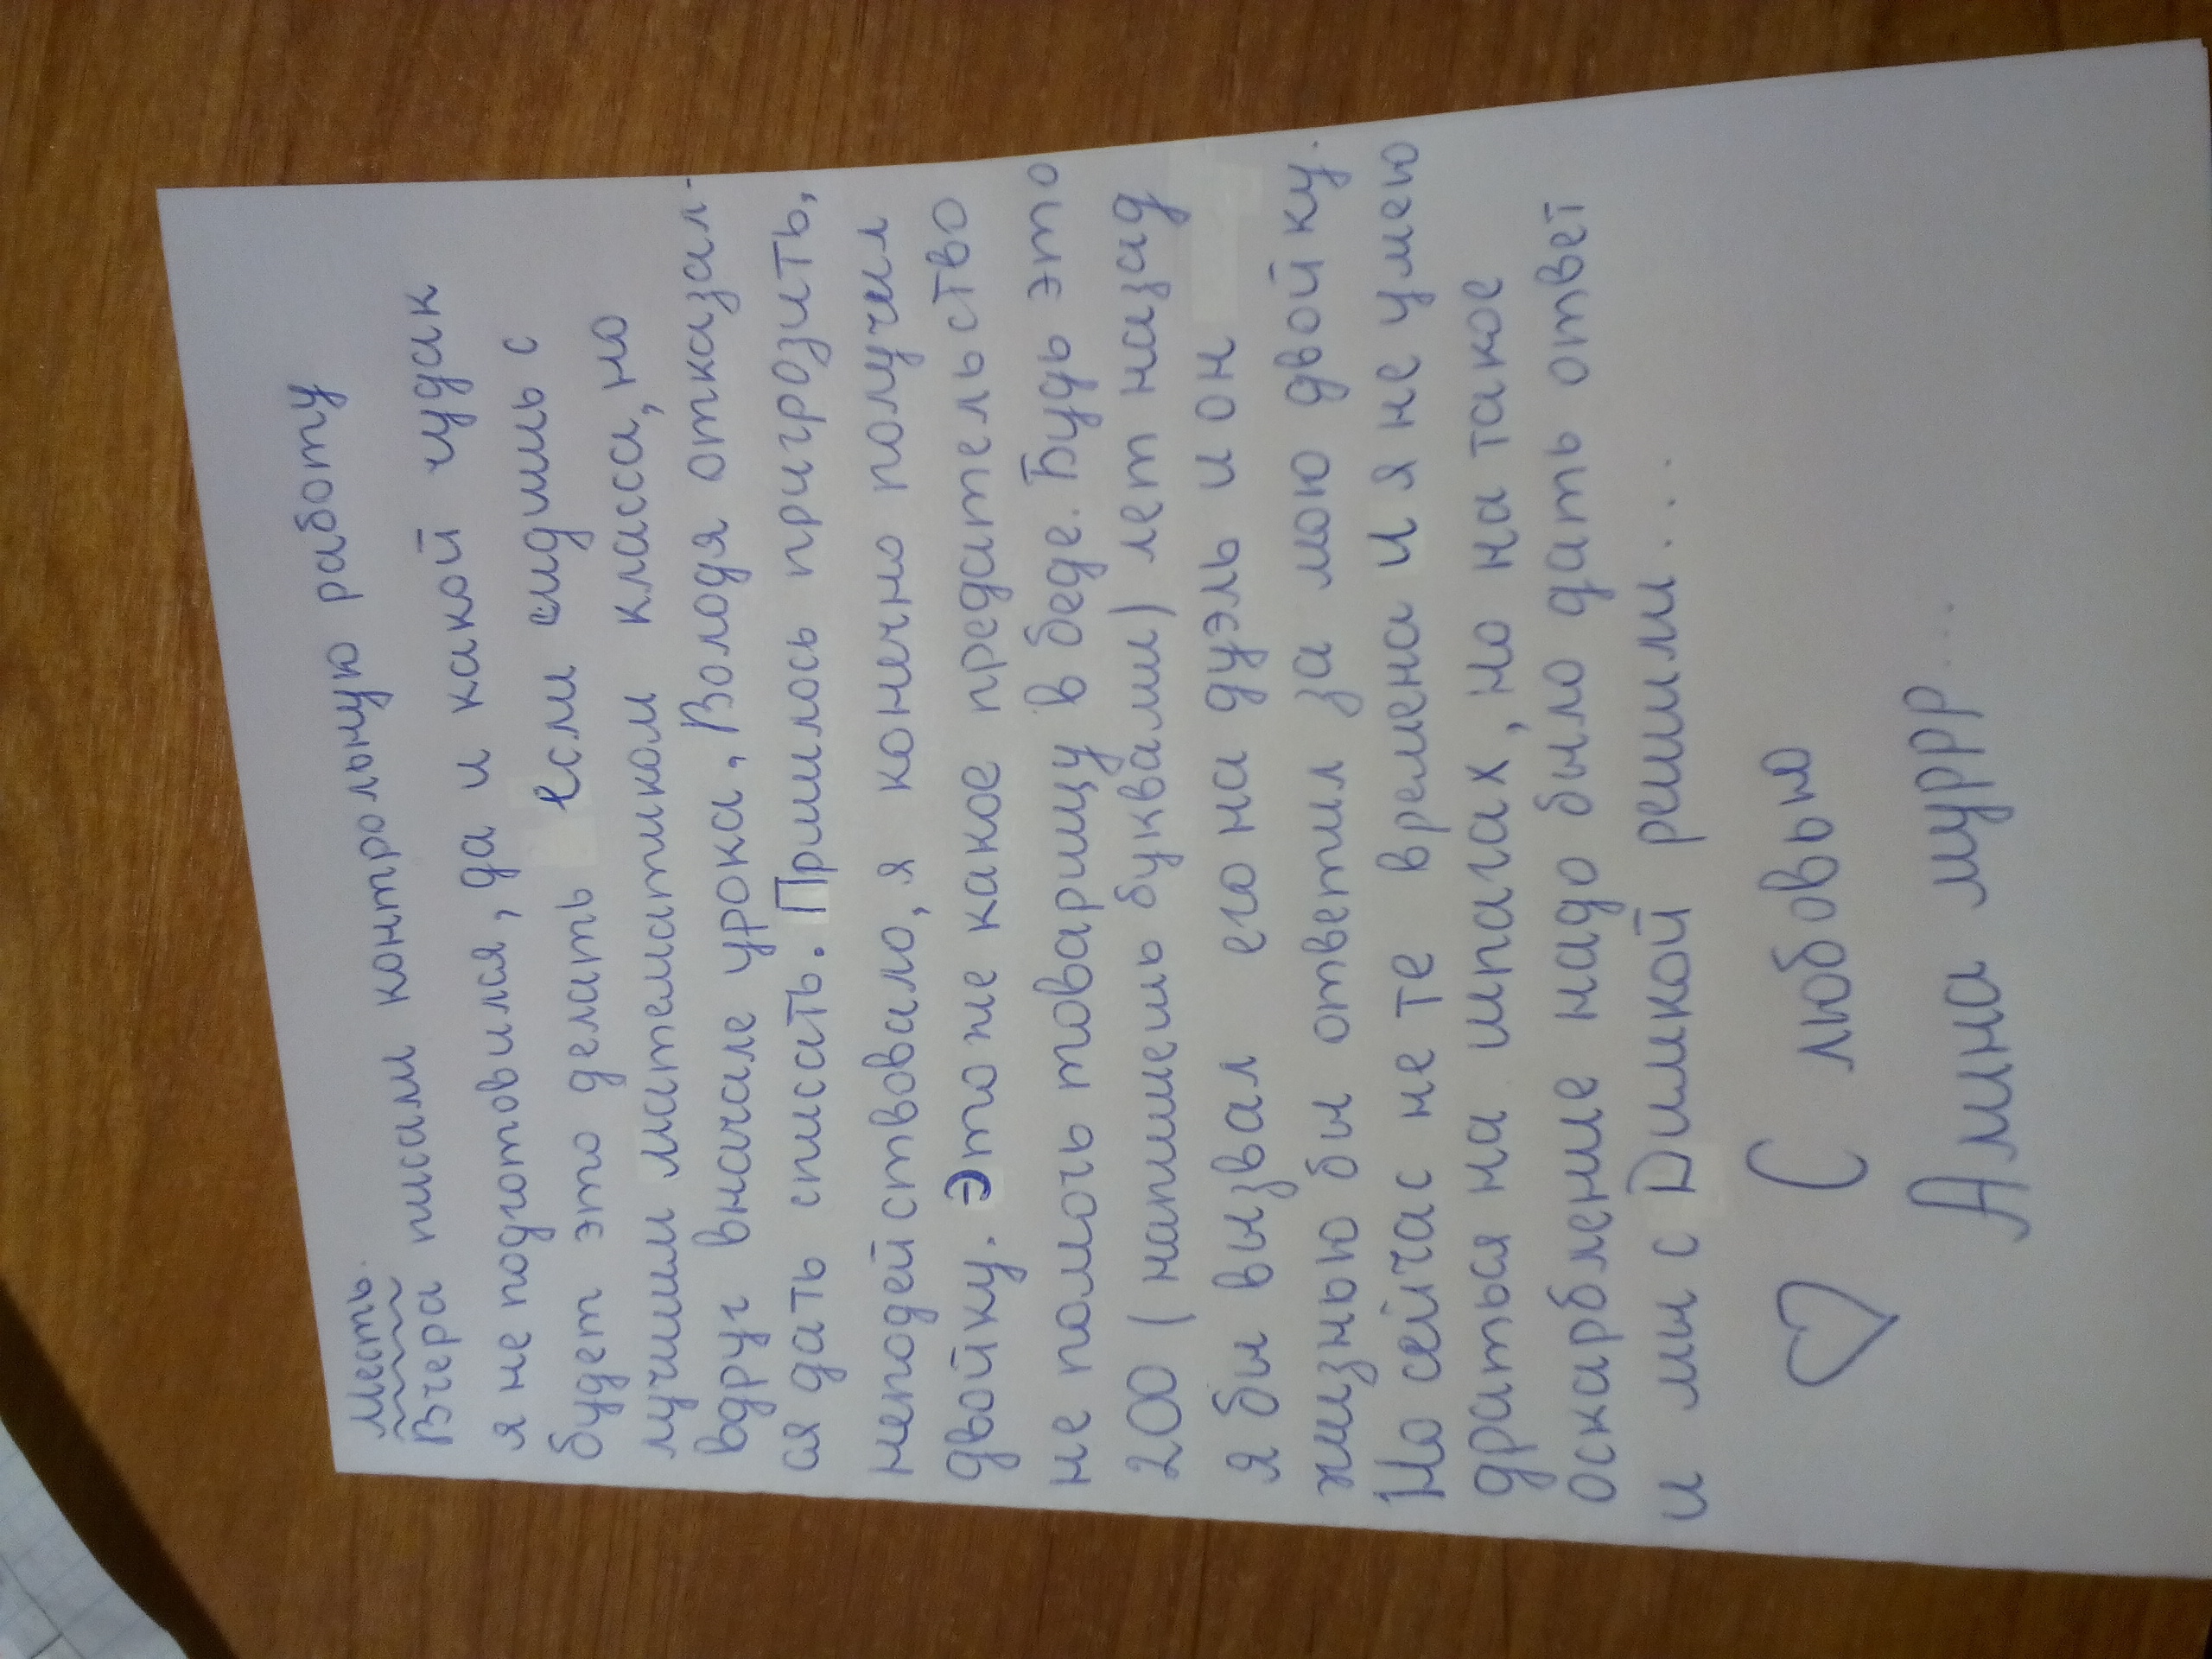 Месть.
Вчера писали контрольную работу
я не подготовился, да и какой чудак
будет это делать если сидишь с
лучшим математиком класса, но
вдруг вначале урока, Володя отказал-
ся дать списать. Пришлось пригрозить,
неподействовало, я конечно получил
двойку. Это же какое предательство
не помочь товарищу в беде. Будь это
200 (напишешь буквами) лет назад
я бы вызвал его на дуэль и он
жизнью бы ответил за мою двойку.
Но сейчас не те времена и я не умею
драться на шпагах, но на такое
оскарбление надо было дать ответ
и мы с Димкой решили....
С любовью
Амина мурр...